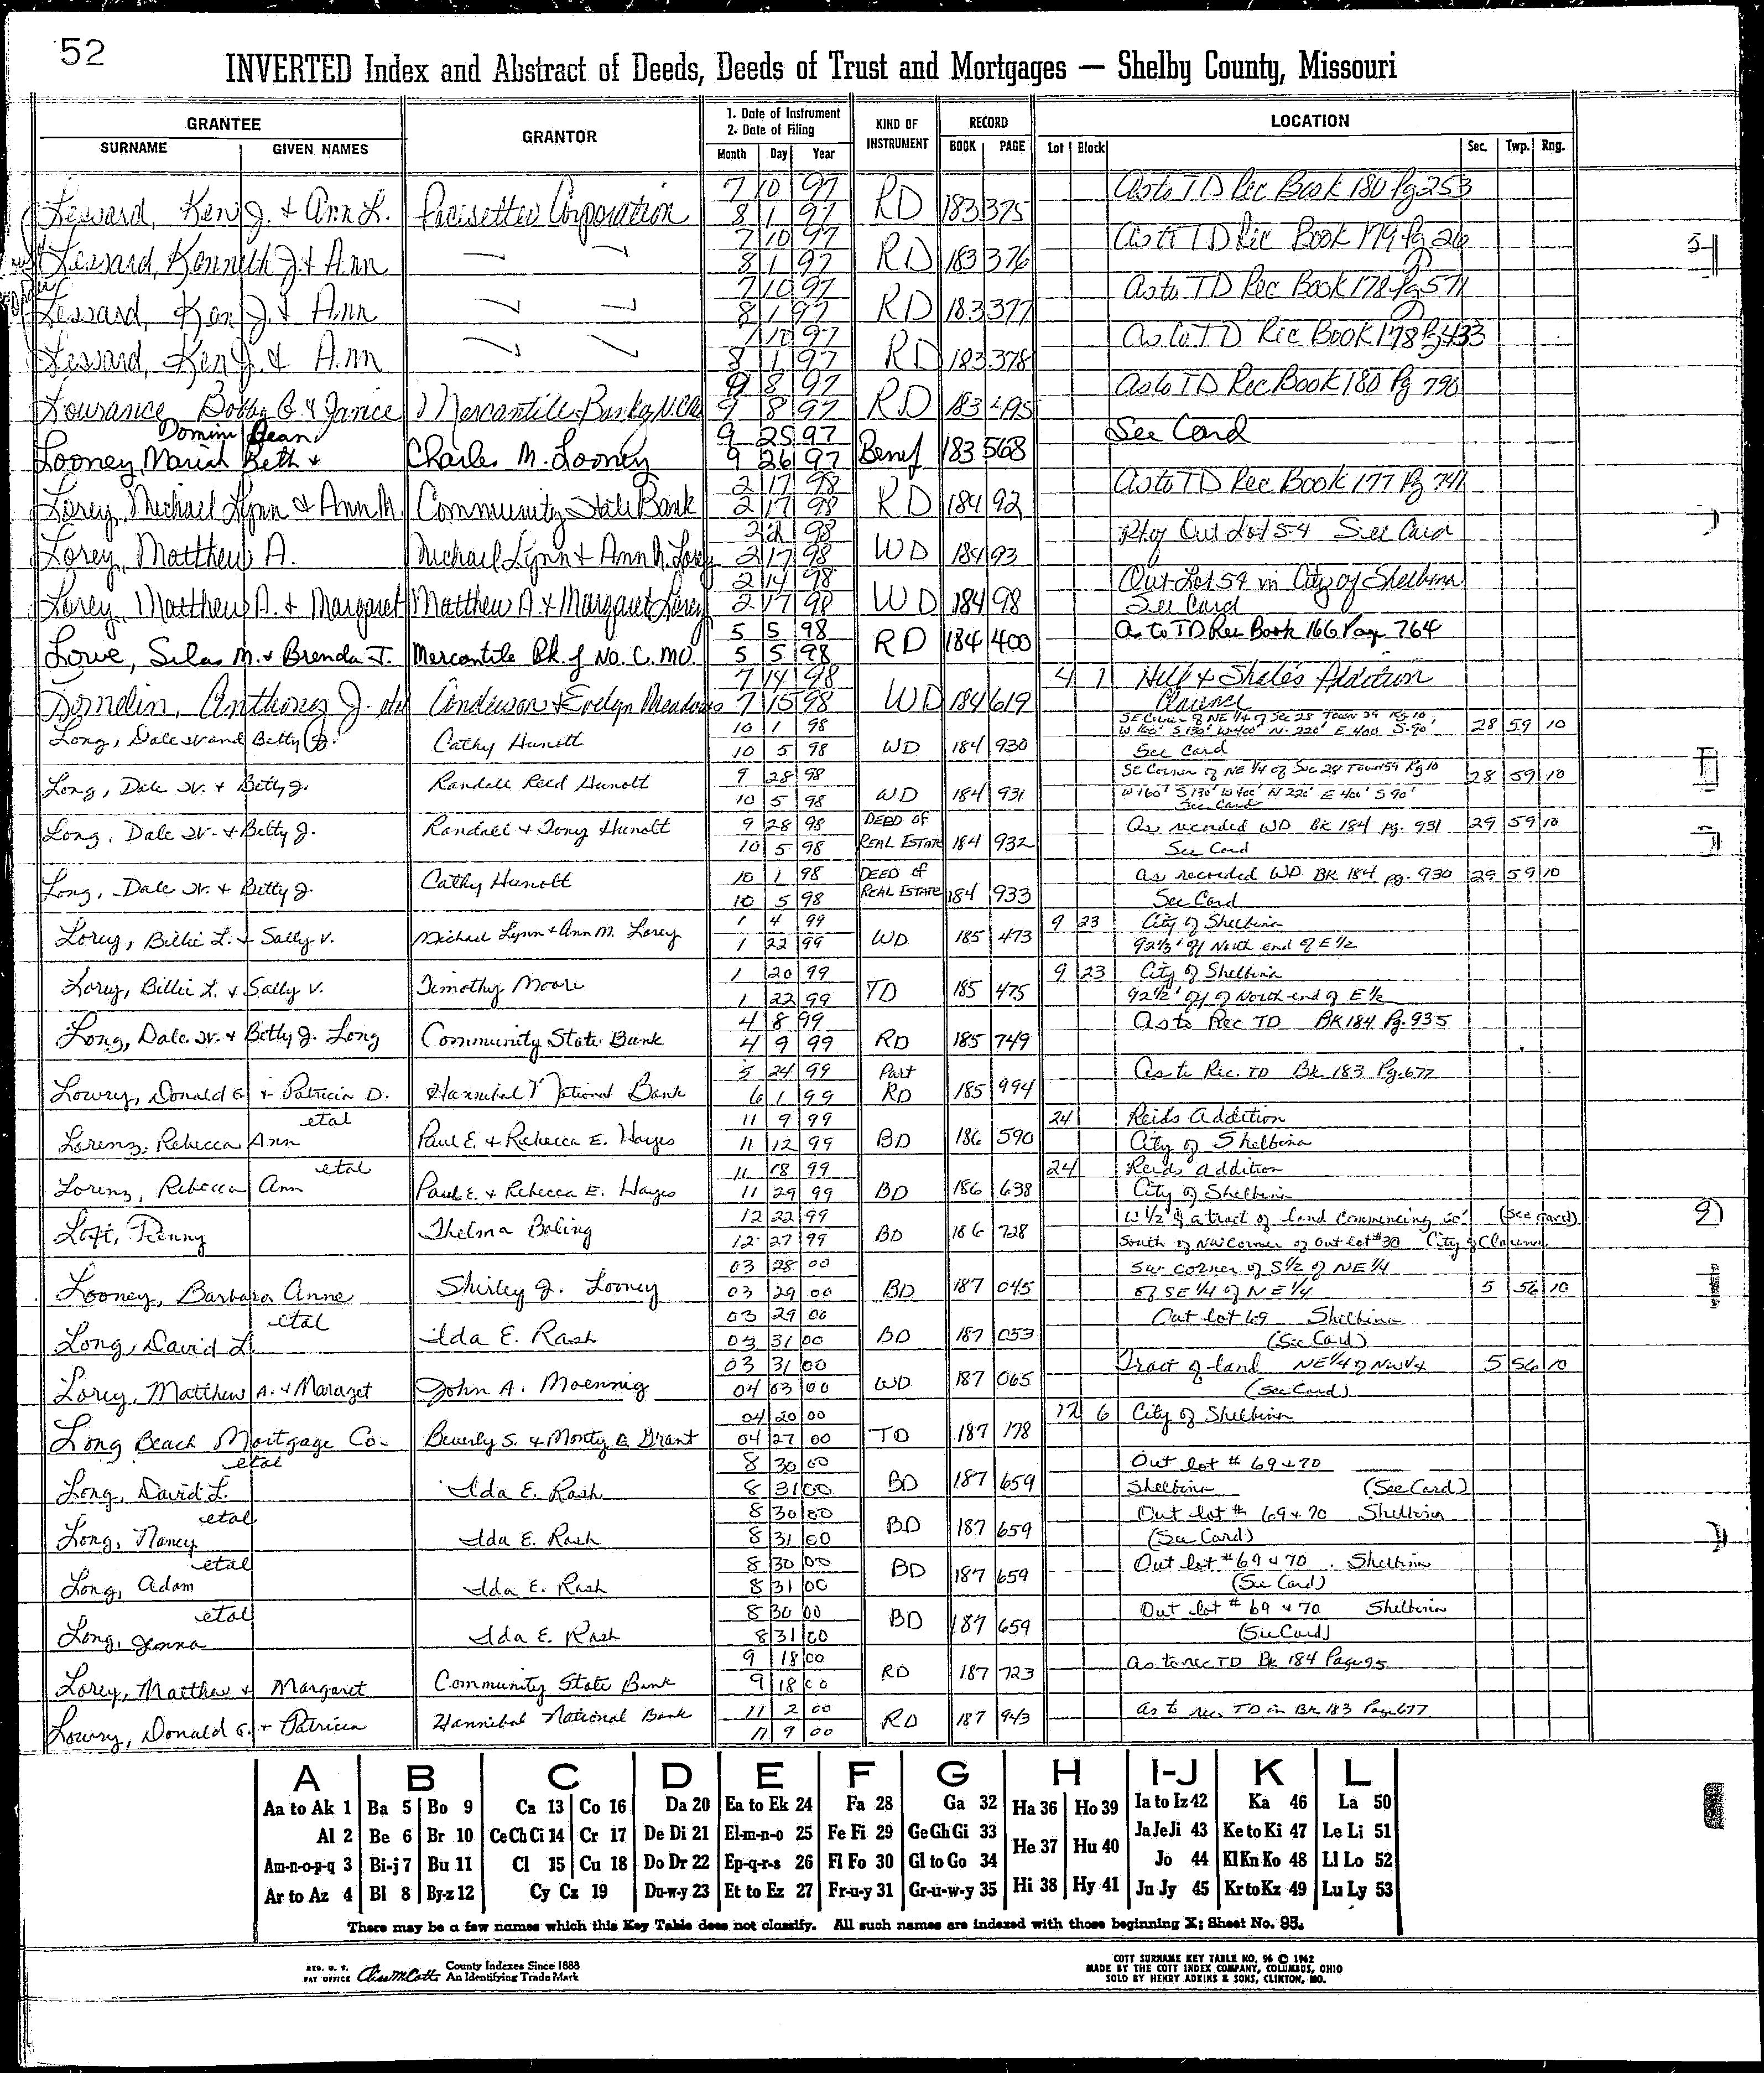 52
INVERTED Index and Abstract of Deeds, Deeds of Trust and Mortgages — Shelby County, Missouri
GRANTEE GRANTOR 1. Date of Instrument 2. Date of Filing KIND OF INSTRUMENT RECORD LOCATION
SURNAME GIVEN NAMES Month Day Year BOOK PAGE Lot Block Sec. Twp. Rng.
7 10 97 As to TD Rec Book 180 Pg 253
Lessard, Ken J. & Ann L. Pacesetter Corporation 8 1 97 RD 183 375
7 10 97 As to TD Rec Book 179 Pg 26
Lessard, Kenneth J. & Ann 8 1 97 RD 183 376
7 10 97 As to TD Rec Book 178 Pg 571
Lessard, Ken J. & Ann 8 1 97 RD 183 377
7 10 97 As to TD Rec Book 178 Pg 433
Lessard, Ken J. & Ann 8 1 97 RD 183 378
9 8 97 As to TD Rec Book 180 Pg 790
Lourance Bobby G. & Janice Mercantile Bank 9 8 97 RD 183 495
Domini Dean 9 25 97 See Card
Looney, Mariah Beth + Charles M. Looney 9 26 97 Benef 183 568
2 17 98 As to TD Rec Book 177 Pg 741
Lorey, Michael Lynn & Ann M. Community State Bank 2 17 98 RD 184 92
98 Out Lot 54 See Card
Lorey, Matthew A. Michael Lynn + Ann M. Lorey 2 17 98 WD 184 93
2 14 98 Out Lot 54 in City of Shelbina
Lorey, Matthew A. & Margaret Matthew A. & Margaret Lorey 2 17 98 WD 184 98 See Card
5 5 98 As to TD Rec Book 166 Page 764
Lowe, Silas M. & Brenda J. Mercantile Bk. of No. C. MO. 5 5 98 RD 184 400
7 14 98 4 1 Addition
Anthony J. Anderson & Evelyn Meadows 7 15 98 WD 184 619 Clarence
10 1 98 SE Corner of NE 1/4 of Sec 28 Town 59 Rg 10, 28 59 10
W 160' S 130' W 400' N. 220' E 400 S. 90'
Long, Dale Jr and Betty J. Cathy Hunolt 10 5 98 WD 184 930 See Card
9 28 98 SE Corner of NE 1/4 of Sec 28 Town 59 Rg 10 28 59 10
Long, Dale Jr. & Betty J. Randall Reed Hunolt 10 5 98 WD 184 931 W 160' S 130' W 400' N 220' E 400' S 90'
See Card
9 28 98 DEED OF As recorded WD BK 184 pg. 931 29 59 10
Long, Dale Jr. + Betty J. Randall + Tony Hunolt 10 5 98 REAL ESTATE 184 932 See Card
10 1 98 DEED OF As recorded WD BK 184 pg. 930 29 59 10
Long, Dale Jr. + Betty J. Cathy Hunolt 10 5 98 REAL ESTATE 184 933 See Card
1 4 99 9 23 City of Shelbina
Lorey, Billie L. + Sally V. Michael Lynn + Ann M. Lorey 1 22 99 WD 185 473 92 1/2' of North end of E 1/2
1 20 99 9 23 City of Shelbina
Lorey, Billie L. + Sally V. Timothy Moore 1 22 99 TD 185 475 92 1/2' of North end of E 1/2
4 8 99 As to Rec TD BK 184 Pg. 935
Long, Dale Jr. + Betty J. Long Community State Bank 4 9 99 RD 185 749
5 24 99 Part As to Rec. TD Bk 183 Pg. 677
Lowry, Donald G. + Patricia D. Hannibal National Bank 6 1 99 RD 185 994
etal 11 9 99 24 Reids Addition
Lorenz, Rebecca Ann Paul E. + Rebecca E. Hayes 11 12 99 BD 186 590 City of Shelbina
etal 11 18 99 24 Reids Addition
Lorenz, Rebecca Ann Paul E. + Rebecca E. Hayes 11 29 99 BD 186 638 City of Shelbina
12 22 99 W 1/2 of a tract of land commencing (See Card)
Loft, Penny Thelma Boling 12 27 99 BD 186 728 South of NW Corner of Out lot #30 City of Clarence
03 28 00 SW corner of S 1/2 of NE 1/4
Looney, Barbara Anne Shirley J. Looney 03 29 00 BD 187 045 of SE 1/4 of NE 1/4 5 56 10
etal 03 29 00 Out lot 69 Shelbina
Long, David L. Ida E. Rash 03 31 00 BD 187 053 (See Card)
03 31 00 Tract of land NE 1/4 of NW 1/4 5 56 10
Lorey, Matthew A. + Margret John A. Moennig 04 03 00 WD 187 065 (See Card)
04 20 00 12 6 City of Shelbina
Long Beach Mortgage Co. Beverly S. & Monty E. Grant 04 27 00 TD 187 178
etal 8 30 00 Out lot # 69 & 70
Long, David L. Ida E. Rash 8 31 00 BD 187 659 Shelbina (See Card)
etal 8 30 00 Out lot # 69 & 70 Shelbina
Long, Nancy Ida E. Rash 8 31 00 BD 187 659 (See Card)
etal 8 30 00 Out lot # 69 & 70 Shelbina
Long, Adam Ida E. Rash 8 31 00 BD 187 659 (See Card)
etal 8 30 00 Out lot # 69 & 70 Shelbina
Long, Jenna Ida E. Rash 8 31 00 BD 187 659 (See Card)
9 18 00 As to rec TD Bk 184 Page 95
Lorey, Matthew & Margaret Community State Bank 9 18 00 RD 187 723
11 2 00 As to rec TD in Bk 183 Page 677
Lowry, Donald G. + Patricia Hannibal National Bank 11 9 00 RD 187 943
A B C D E F G H I-J K L
Aa to Ak 1 Ba 5 Bo 9 Ca 13 Co 16 Da 20 Ea to Ek 24 Fa 28 Ga 32 Ha 36 Ho 39 Ia to Iz 42 Ka 46 La 50
Al 2 Be 6 Br 10 Ce Ch Ci 14 Cr 17 De Di 21 El-m-n-o 25 Fe Fi 29 Ge Gh Gi 33 He 37 Hu 40 Ja Je Ji 43 Ke to Ki 47 Le Li 51
Am-n-o-p-q 3 Bi-j 7 Bu 11 Cl 15 Cu 18 Do Dr 22 Ep-q-r-s 26 Fl Fo 30 Gl to Go 34 Jo 44 Kl Kn Ko 48 Ll Lo 52
Ar to Az 4 Bl 8 By-z 12 Cy Cz 19 Du-w-y 23 Et to Ez 27 Fr-u-y 31 Gr-u-w-y 35 Hi 38 Hy 41 Ju Jy 45 Kr to Kz 49 Lu Ly 53
There may be a few names which this Key Table does not classify. All such names are indexed with those beginning X; Sheet No. 95.
REG. U. S. PAT OFFICE County Indexes Since 1888 An Identifying Trade Mark
COTT SURNAME KEY TABLE NO. 96 © 1962
MADE BY THE COTT INDEX COMPANY, COLUMBUS, OHIO
SOLD BY HENRY ADKINS & SONS, CLINTON, MO.